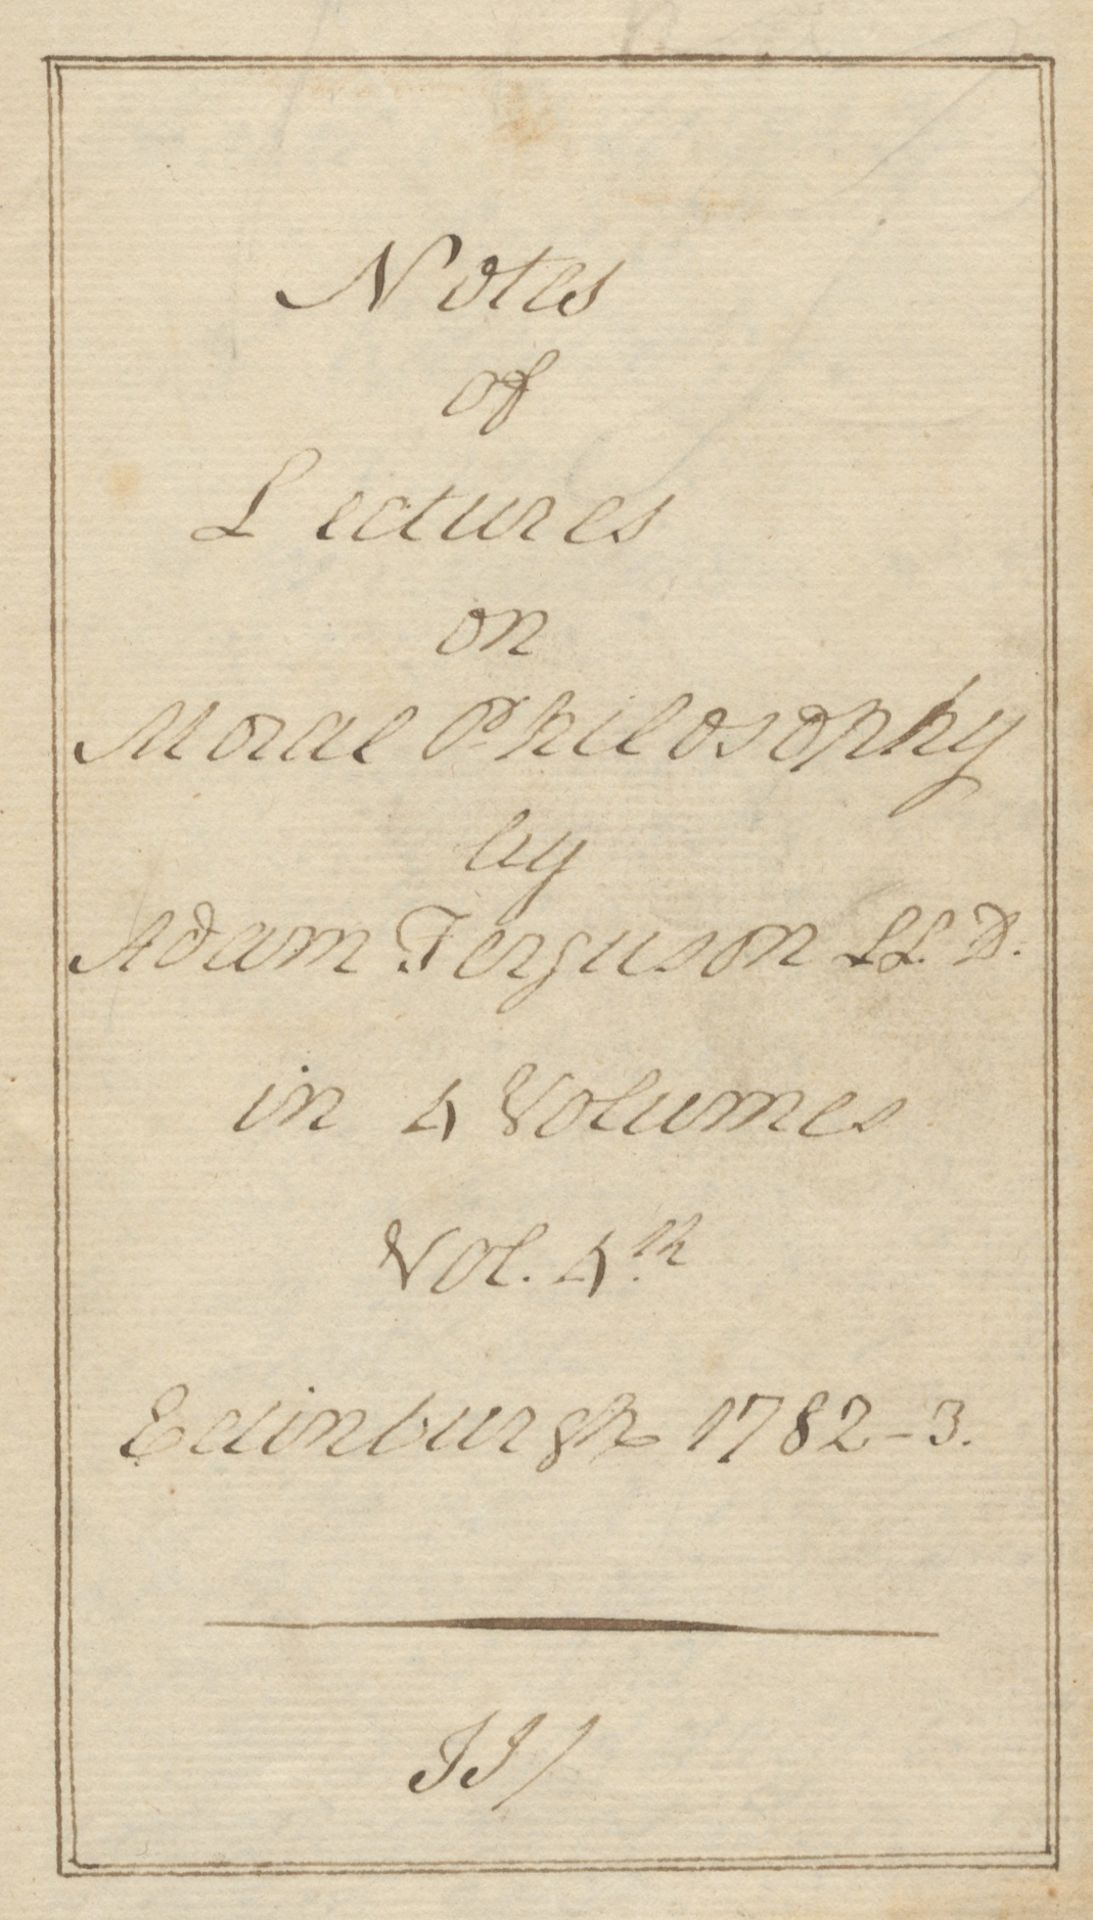 Notes
of
Lectures
on
Moral Philosophy
by
Adam Ferguson LL.D.
in 4 Volumes
Vol. 4th
Edinburgh 1782-3.